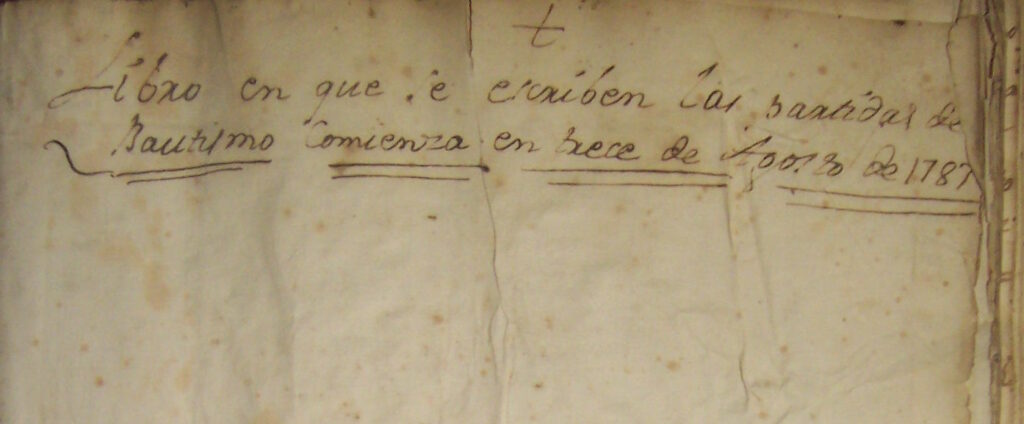 Libro en que se escriben las partidas de
Bautismo Comienza en trece de Agosto de 1787